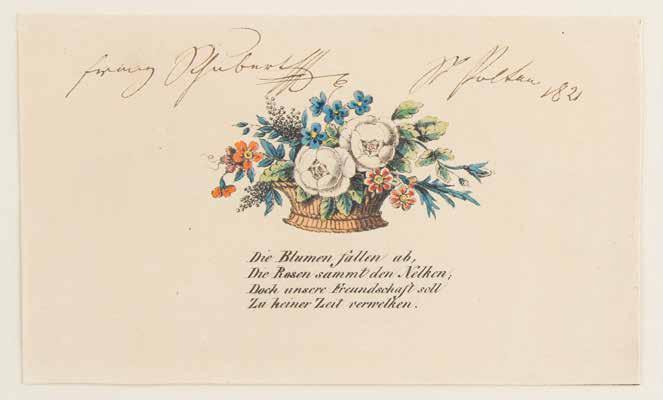 Franz Schubert St Pölten 1821
Die Blumen fallen ab,
Die Rosen sammt den Nelken;
Doch unsere Freundschaft soll
Zu keiner Zeit verwelken.